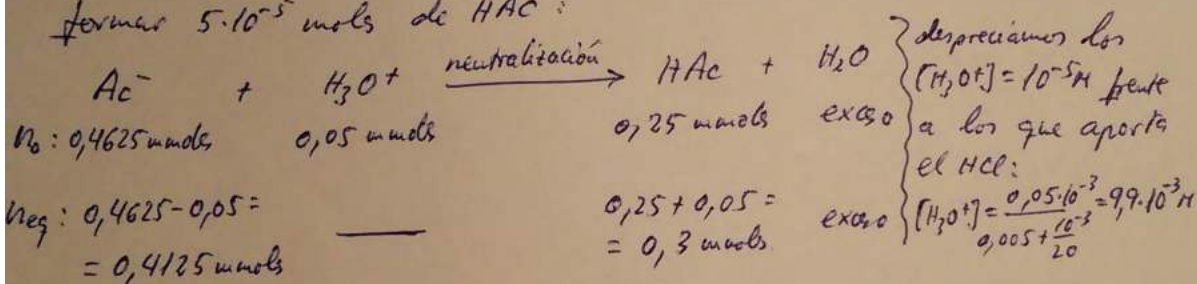 formar 5·10⁻⁵ mols de HAc:
Ac⁻ + H₃O⁺ neutralización → HAc + H₂O
n₀: 0,4625 mmols 0,05 mmols 0,25 mmols exceso
neq: 0,4625-0,05= —— 0,25+0,05= exceso
= 0,4125 mmols = 0,3 mmols
despreciamos los
[H₃O⁺]=10⁻⁵M frente
a los que aporta
el HCl:
[H₃O⁺]= 0,05·10⁻³ / (0,005+10⁻³/20) =9,9·10⁻³M